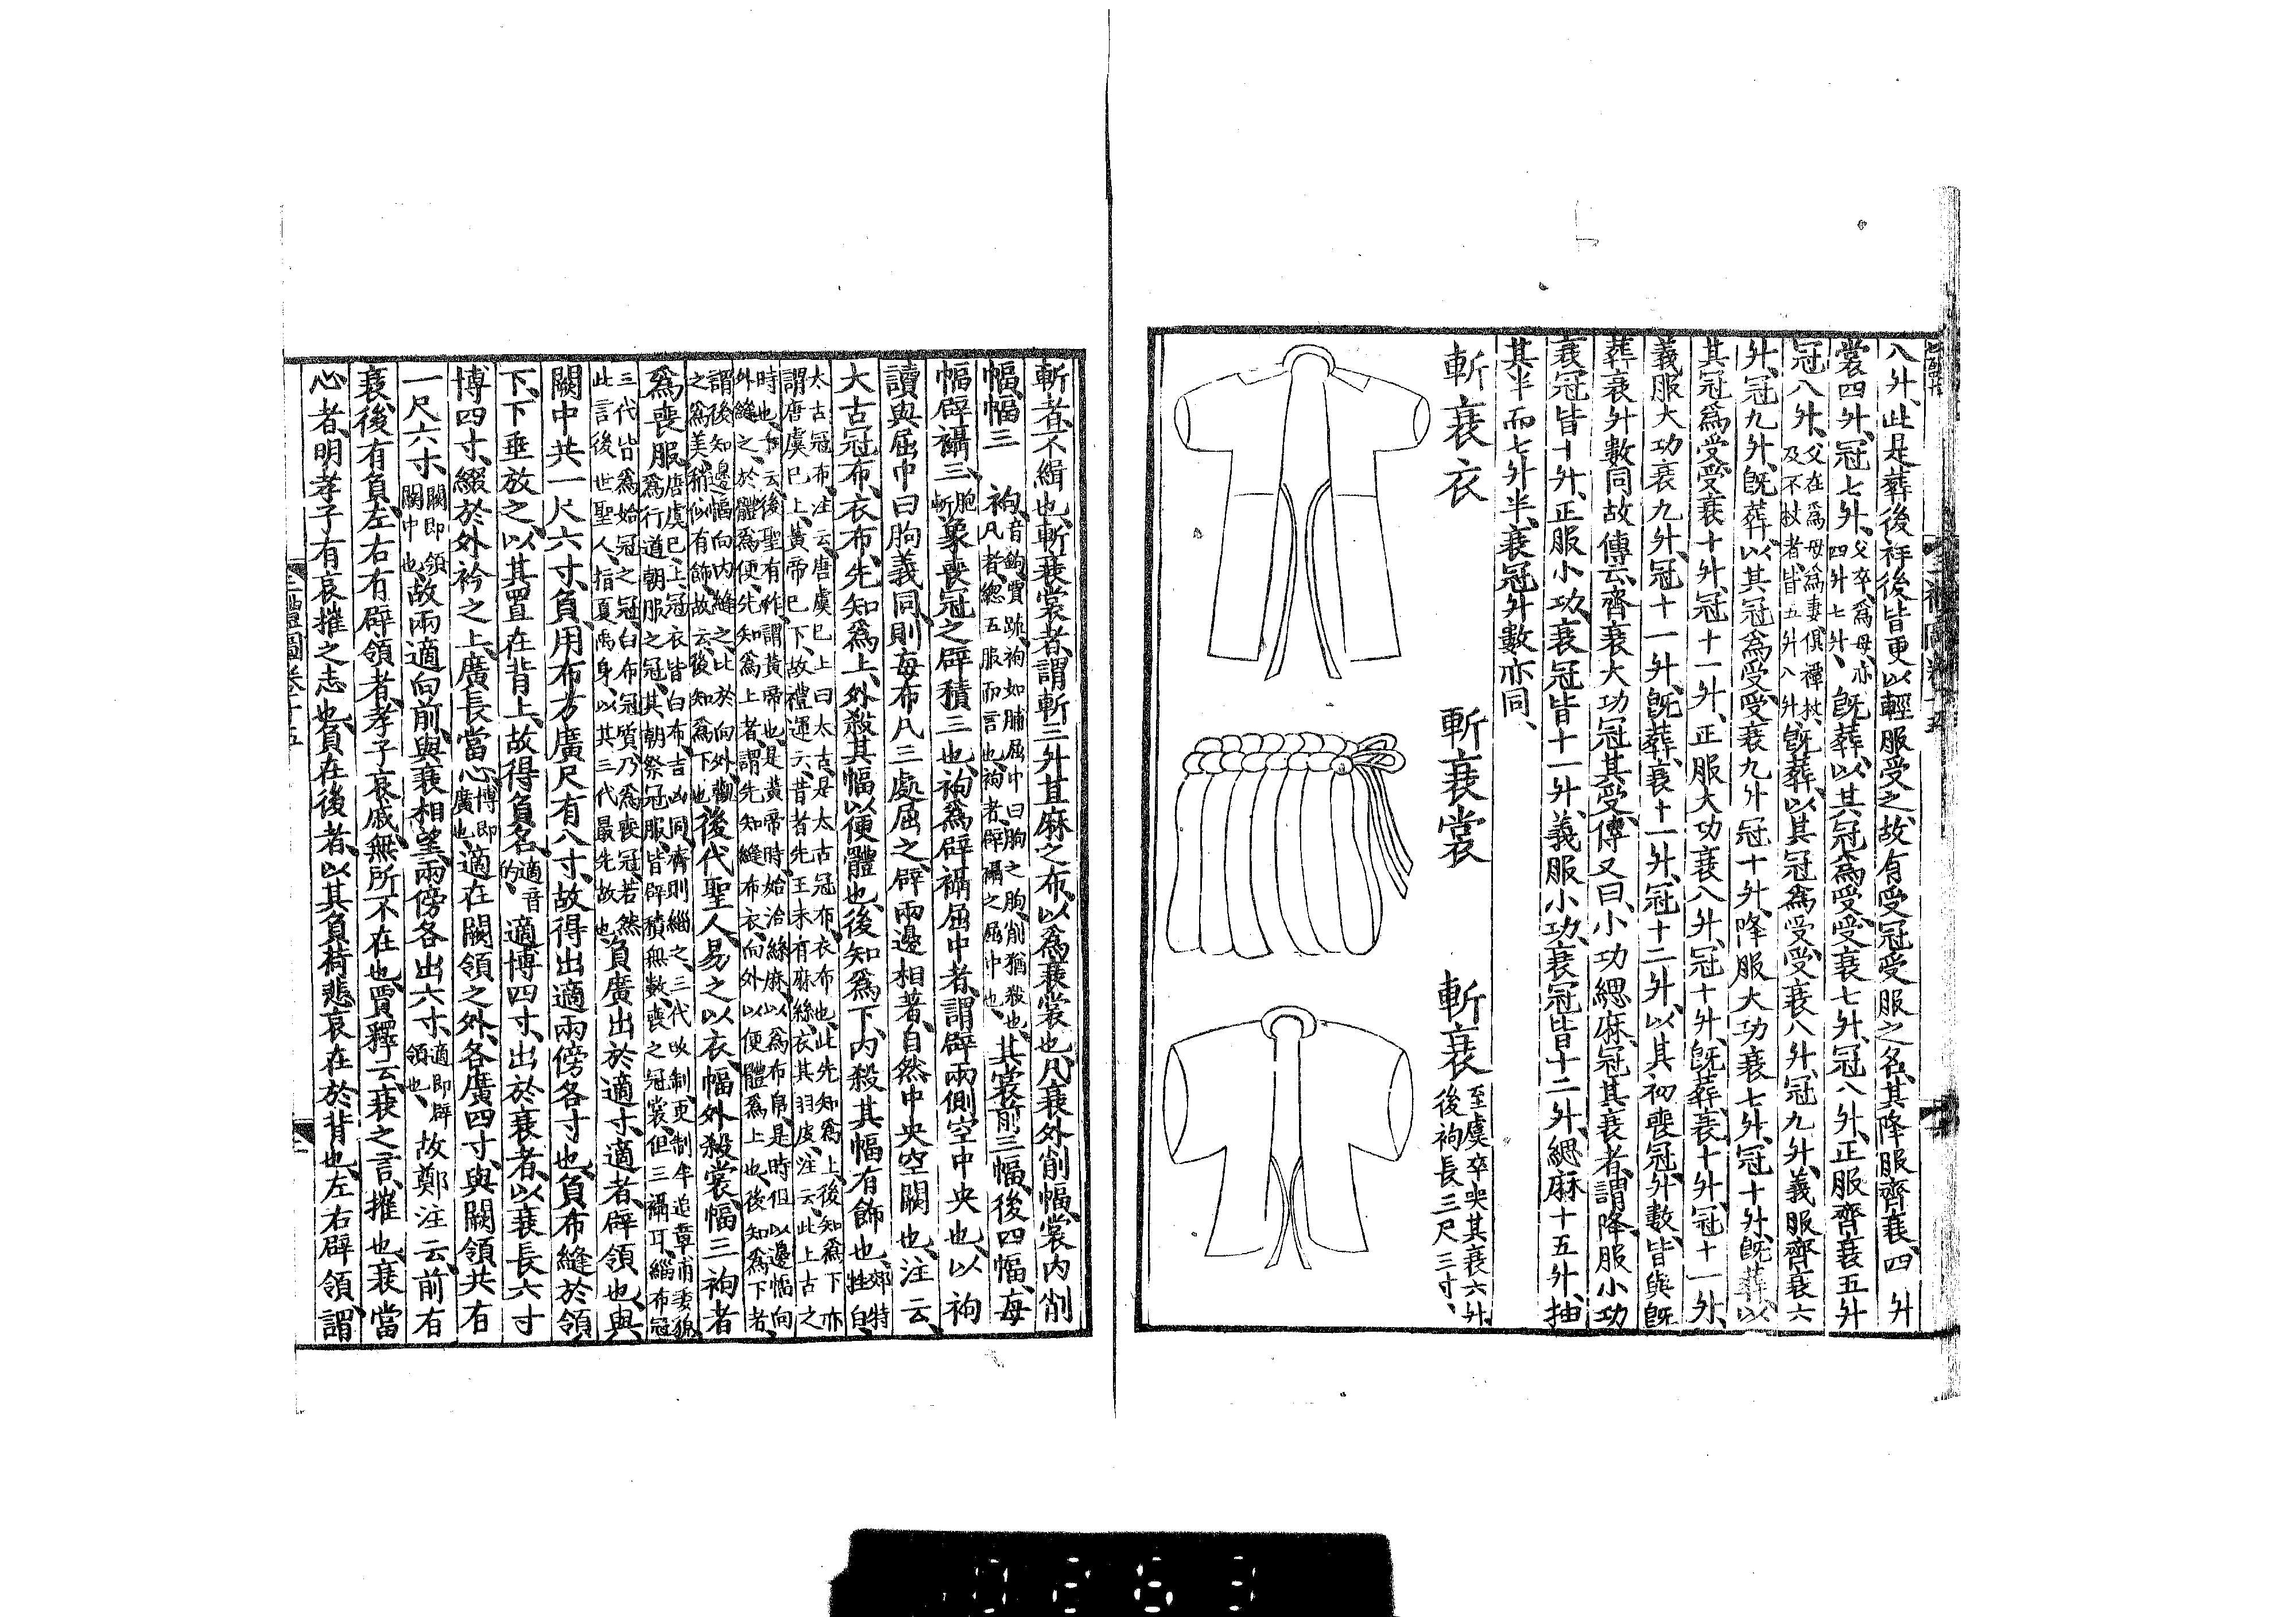 八升、此是葬後祥後皆更以輕服受之、故有受冠受服之名、其降服齊衰、四升
裳四升、冠七升、父卒、爲母亦四升七升、既葬、以其冠爲受、受衰七升、冠八升、正服齊衰五升
冠八升、父在爲母爲妻俱禫杖、及不杖者、皆五升八升、既葬、以其冠爲受、受衰八升、冠九升、義服齊衰六
升、冠九升、既葬、以其冠爲受、受衰九升冠十升、降服大功衰七升、冠十升、既葬、以
其冠爲受、受衰十升、冠十一升、正服大功衰八升、冠十升、既葬、衰十升、冠十一升、
義服大功衰九升、冠十一升、既葬、衰十一升、冠十二升、以其初喪冠升數、皆與既
葬衰升數同、故傳云、齊衰大功冠其受、傳又曰、小功緦麻、冠其衰者、謂降服小功
衰冠皆十升、正服小功、衰冠皆十一升、義服小功、衰冠皆十二升、緦麻十五升、抽
其半而七升半、衰冠升數亦同、
斬衰衣
斬衰裳
斬衰至虞卒哭其衰六升、後袧長三尺三寸、
斬者、不緝也、斬衰裳者、謂斬三升苴麻之布、以爲衰裳也、凡衰外削幅、裳内削
幅、幅三袧、袧音鉤、賈疏、袧如脯屈中曰朐之朐、削猶殺也、凡者、總五服而言也、袧者、辟襵之屈中也、其裳前三幅、後四幅、每
幅辟襵三、象喪冠之辟積三也、袧爲辟襵屈中者、謂辟兩側空中央也、以袧
讀與屈中曰朐義同、則每布凡三處屈之、辟兩邊相著、自然中央空闕也、注云、
大古冠布、衣布、先知爲上、外殺其幅、以便體也、後知爲下、内殺其幅有飾也、郊特牲曰、
太古冠布、注云、唐虞已上曰太古、是太古冠布衣布也、此先知爲上、後知爲下、亦
謂唐虞已上、黃帝已下、故禮運云、昔者先王未有麻絲、衣其羽皮、注云、此上古之
時也、又云、後聖有作、謂黃帝也、是黃帝時始治絲麻、以爲布帛、是時但以邊幅向
外縫之、於體爲便、先知爲上者、謂先知縫布衣、向外以便體爲上也、後知爲下者、
謂後知邊幅向内縫之、比於向外觀之爲美、稍似有飾、故云後知爲下也、後代聖人易之、以衣、幅外殺、裳、幅三袧者
爲喪服、唐虞已上、冠衣皆白布、吉凶同、齊則緇之、三代改制、更制牟追章甫委貌、爲行道朝服之冠、其朝祭冠服、皆辟積無數、喪之冠裳、但三襵耳、緇布冠
三代皆爲始冠之冠、白布冠質、乃爲喪冠、若然、此言後世聖人、指夏禹身、以其三代最先故也、負廣出於適寸、適者、辟領也、與
闕中共一尺六寸、負用布方廣尺有八寸、故得出適兩傍各寸也、負布縫於領
下、下垂放之、以其置在背上、故得負名、適音的、適博四寸、出於衰者、以衰長六寸
博四寸、綴於外衿之上、廣長當心、博即廣也、適在闕領之外、各廣四寸、與闕領共有
一尺六寸、闕即領闕中也、故兩適向前、與衰相望、兩傍各出六寸、適即辟領也、故鄭注云、前有
衰、後有負、左右有辟領者、孝子哀戚、無所不在也、賈釋云、衰之言、摧也、衰當
心者、明孝子有哀摧之志也、負在後者、以其負荷悲哀在於背也、左右辟領、謂
三禮圖卷十五
0263